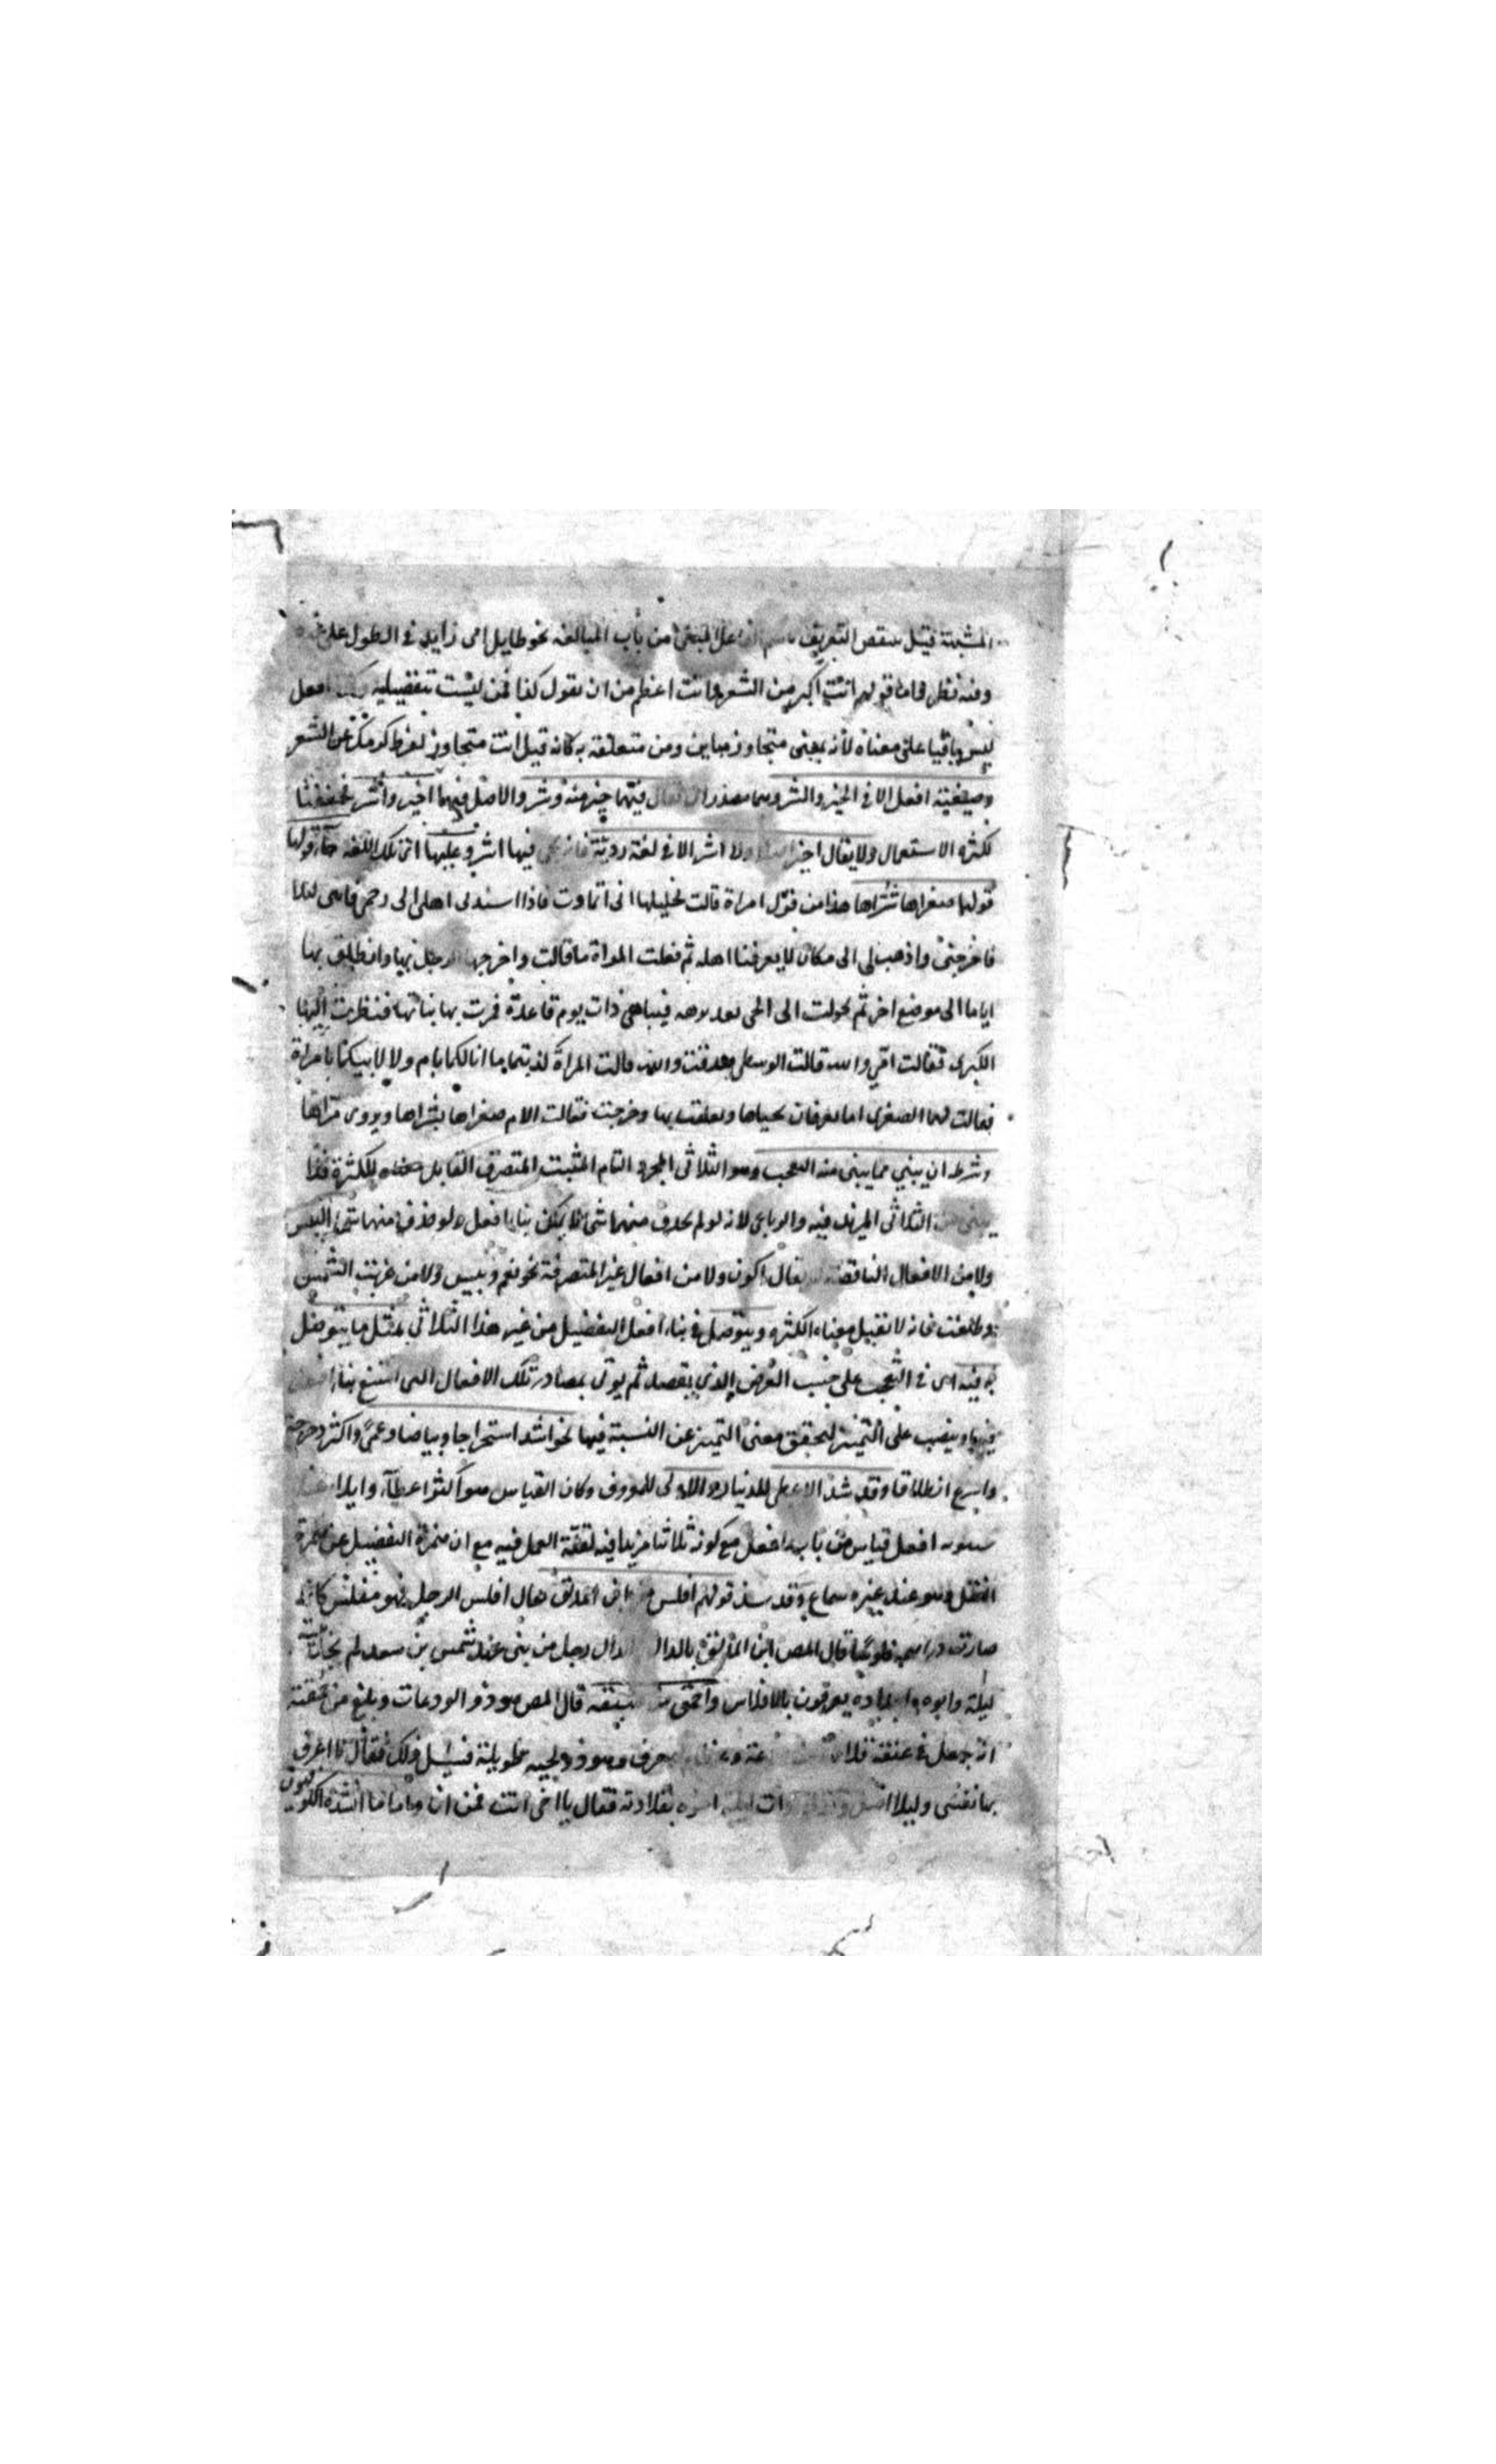 المشبهة قيل ينقض التعريف باسم الفاعل المبني من باب المبالغة نحو طايل اى زايد في الطول على غيره
وفيه نظر واما قولهم انت اكبر من الشعر وانت اعظم من ان تقول كذا فمن ليست تفضيلية افعل
ليس باقيا على معناه لأنه بمعنى متجاوز مباين ومن متعلقة به كانه قيل انت متجاوز لفرط كرمك عن الشعر
وصيغته افعل الا في الخير والشر يقال فيهما خير منه وشر والاصل فيهما اخير واشر فخففتا
لكثره الاستعمال ولا يقال اخير ولا اشر الا في لغة رديئة فيها اشر وعليها اى تلك اللغه جآء قولها
قولها صغراها شراها هذا من قول امراة قالت لخليلها انى اتماوت فاذا اسندنى اهلى الى رحمى
فاخرجنى واذهب بى الى مكان لا يعرفنا اهله ثم فعلت المراة ما قالت واخرجها الرجل وانطلق بها
اياما الى موضع اخر ثم تحولت الى الحى بعد فبينا هى ذات يوم قاعدة مرت بها بناتها فنظرت اليها
الكبرى فقالت امى والله قالت الوسطى صدقت والله قالت المراة كذبتما ما انا لكما بام ولا لابيكما بامراة
فقالت لهما الصغرى اما تعرفان محياها وتعلقت بها وخرجت فقالت الام صغراها شراها ويروى مراها
وشرطه ان يبني مما يبنى منه التعجب وهو الثلاثى المجرد التام المثبت المتصرف القابل معناه للكثرة فلا
يبنى من الثلاثى المزيد فيه والرباعى لانه لو لم يحذف منهما شئ لم يمكن بناء افعل ولو حذف منهما شئ التبس
ولا من الافعال الناقصة يقال اكون ولا من افعال غير المتصرفة نحو نعم وبيس ولا من غربت الشمس
وطلعت فانه لا تقبل معناه الكثره ويتوصل في بناء افعل التفضيل من غير هذا الثلاثى بمثل ما يتوصل
به فيه اى في التعجب على حسب الغرض الذي يقصد ثم يوتى بمصادر تلك الافعال التى امتنع بناء افعل
فيها وينصب على التميز لتحقق معنى التميز عن النسبة فيها نحو اشد استخراجا وبياضا وعمى واكثر دحرجة
واسرع انطلاقا وقد شذ الاعطى للدنيا والاولى للمعروف وكان القياس هو اكثر اعطآء وايلاء
سيبويه افعل قياس من باب افعل مع كونه ثلاثيا مزيدا فيه لقلة العمل فيه مع ان همزة التفضيل عن همزة
افعل وهو عند غيره سماع وقد شذ قولهم افلس من ابن المذلق يقال افلس الرجل فهو مفلس كانه
صارت دراسمه فلوسا قال المص ابن المذلق بالدال الذال رجل من بنى عبد شمس بن سعد لم يجد بيته
ليلة وابوه واجداده يعرفون بالافلاس واحمق من هبنقة قال المص هو ذو الودعات وبلغ من حمقه
انه جعل في عنقه قلادة خزف وهو ذو لحيه طويلة فسئل ذلك فقال لا اعرف
بها نفسى ولئلا اضل ذات ليلة اخوه بقلادته فقال يا اخى انت فمن انا واما ما انشده الكوفيون